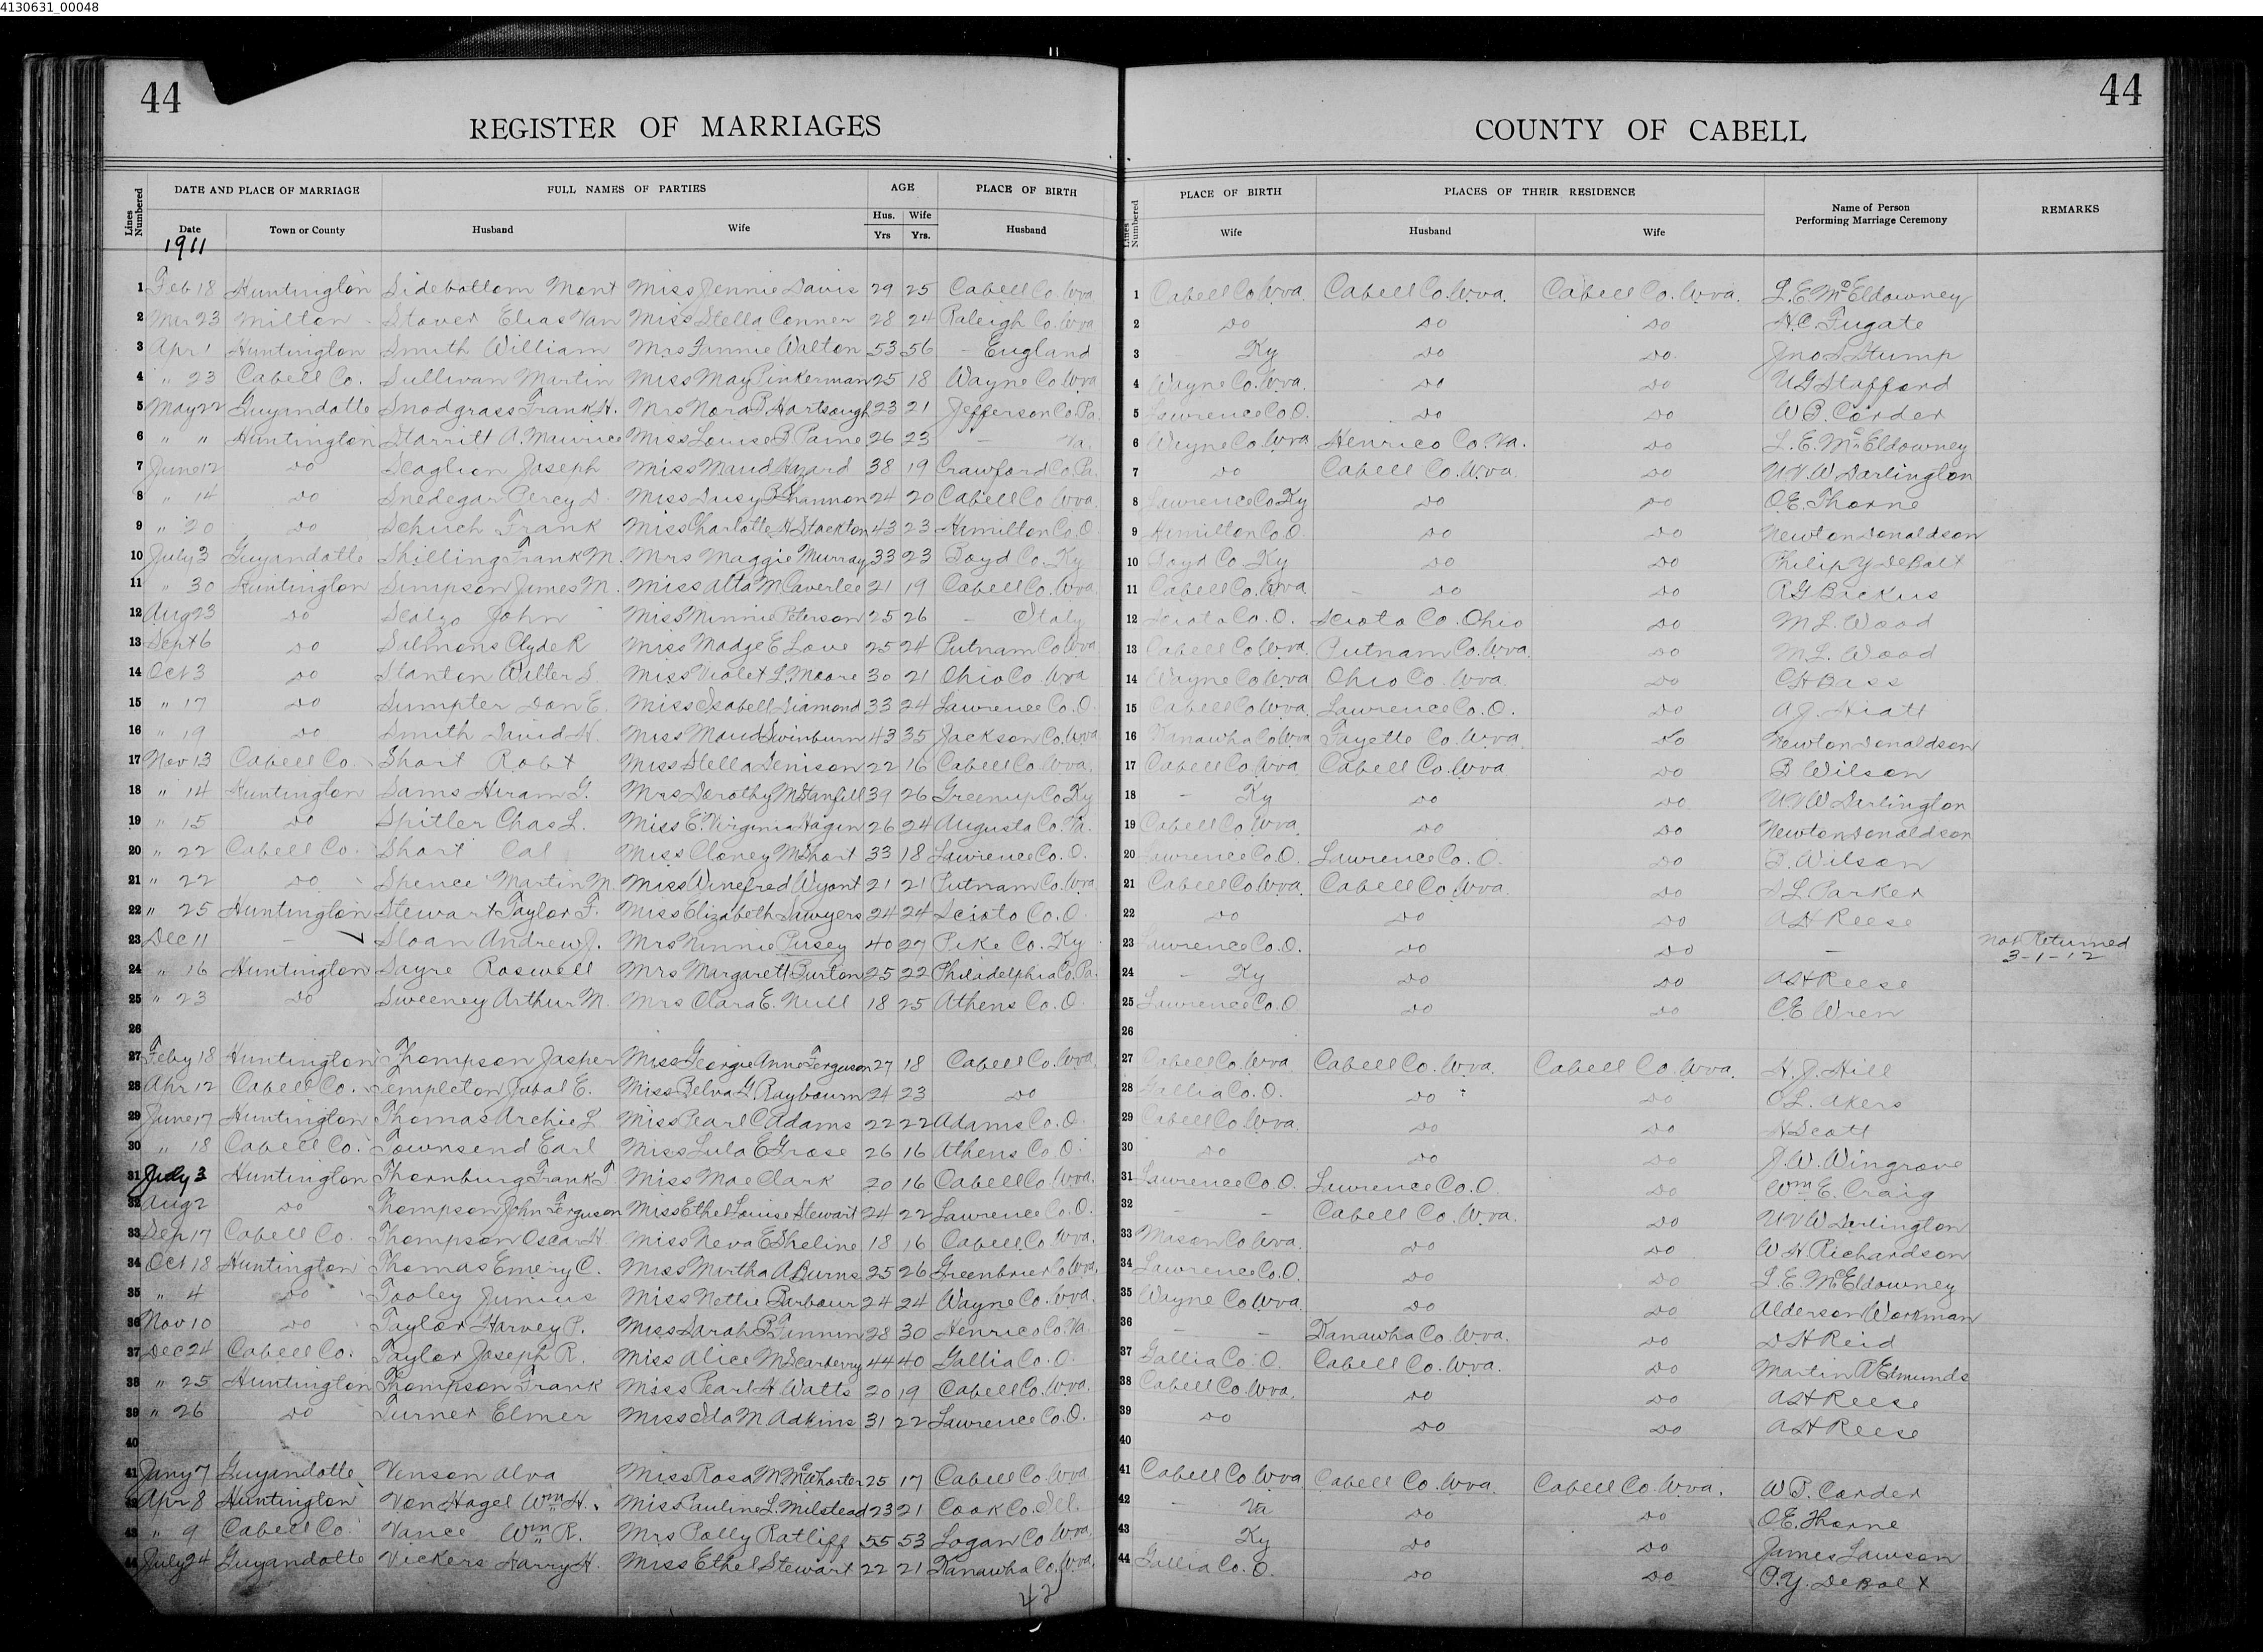 4130631_00048
44
REGISTER OF MARRIAGES
Lines Numbered | DATE AND PLACE OF MARRIAGE | FULL NAMES OF PARTIES | AGE | PLACE OF BIRTH
Date | Town or County | Husband | Wife | Hus. Yrs | Wife Yrs. | Husband
1911
1 Feb 18 Huntington Sidebottom Mont Miss Jennie Davis 29 25 Cabell Co. Wva
2 Mar 23 Milton Stover Elias Van Miss Stella Conner 28 24 Raleigh Co. Wva
3 Apr 1 Huntington Smith William Mrs Fannie Walton 53 56 - England
4 " 23 Cabell Co. Sullivan Martin Miss May Pinkerman 25 18 Wayne Co Wva
5 May 22 Guyandotte Snodgrass Frank H. Mrs Nora B. Hartsough 23 21 Jefferson Co. Pa.
6 " " Huntington Starritt A. Maurice Miss Louise B Paine 26 23 - Va.
7 June 12 do Scaglion Joseph Miss Maud Hazard 38 19 Crawford Co. Pa.
8 " 14 do Snedegar Percy D. Miss Daisy B Shannon 24 20 Cabell Co Wva.
9 " 20 do Schuch Frank Miss Charlotte H Stockton 43 23 Hamilton Co. O.
10 July 3 Guyandotte Shilling Frank M. Mrs Maggie Murray 33 23 Boyd Co. Ky
11 " 30 Huntington Simpson James M. Miss Atta M. Caverlee 21 19 Cabell Co. Wva.
12 Aug 23 do Scalzo John Miss Minnie Peterson 25 26 - Italy
13 Sept 6 do Salmons Clyde R Miss Madge E Love 25 24 Putnam Co Wva
14 Oct 3 do Stanton Walter S. Miss Violet L. Moore 30 21 Ohio Co. Wva
15 " 17 do Sumpter Don E. Miss Isabell Diamond 33 24 Lawrence Co. O.
16 " 19 do Smith David H. Miss Maud Swinburn 43 35 Jackson Co. Wva
17 Nov 13 Cabell Co. Short Robt Miss Stella Denison 22 16 Cabell Co. Wva.
18 " 14 Huntington Sams Hiram G. Mrs Dorothy M Stanfill 39 26 Greenup Co Ky
19 " 15 do Spitler Chas L. Miss E. Virginia Hagen 26 24 Augusta Co. Va.
20 " 22 Cabell Co. Short Cal Miss Cloney M Short 33 18 Lawrence Co. O.
21 " 22 do Spence Martin M. Miss Winefred Wyant 21 21 Putnam Co. Wva
22 " 25 Huntington Stewart Taylor F. Miss Elizabeth Sawyers 24 24 Scioto Co. O.
23 Dec 11 - Sloan Andrew J. Mrs Minnie Pusey 40 27 Pike Co. Ky
24 " 16 Huntington Sayre Roswell Mrs Margarett Burton 25 22 Philadelphia Co. Pa.
25 " 23 do Sweeney Arthur M. Mrs Clara E. Null 18 25 Athens Co. O.
26
27 Feby 18 Huntington Thompson Jasper Miss Georgie Anne Ferguson 27 18 Cabell Co. Wva.
28 Apr 12 Cabell Co. Templeton Jubal E. Miss Belva G. Raybourn 24 23 do
29 June 17 Huntington Thomas Archie L Miss Pearl C Adams 22 22 Adams Co. O.
30 " 18 Cabell Co. Townsend Earl Miss Lula E Grose 26 16 Athens Co. O.
31 July 3 Huntington Thornburg Frank T. Miss Mae Clark 20 16 Cabell Co. Wva.
32 Aug 2 do Thompson John Ferguson Miss Ethel Louise Stewart 24 22 Lawrence Co. O.
33 Sep 17 Cabell Co. Thompson Oscar H. Miss Neva E Sheline 18 16 Cabell Co Wva.
34 Oct 18 Huntington Thomas Emery C. Miss Martha A Burns 25 26 Greenbrier Co Wva.
35 " 4 do Tooley Junius Miss Nettie Barbour 24 24 Wayne Co. Wva.
36 Nov 10 do Taylor Harvey P. Miss Sarah B Fannin 28 30 Henrico Co. Va.
37 Dec 24 Cabell Co. Taylor Joseph R. Miss Alice M Scarberry 44 40 Gallia Co. O.
38 " 25 Huntington Thompson Frank Miss Pearl H Watts 20 19 Cabell Co. Wva.
39 " 26 do Turner Elmer Miss Ida M. Adkins 31 22 Lawrence Co. O.
40
41 Jany 7 Guyandotte Vinson Alva Miss Rosa M McWhorter 25 17 Cabell Co. Wva
42 Apr 8 Huntington Von Hagel Wm H. Miss Pauline L. Milstead 23 21 Cook Co. Ill.
43 " 9 Cabell Co. Vance Wm R. Mrs Polly Ratliff 55 53 Logan Co Wva.
44 July 24 Guyandotte Vickers Harry H. Miss Ethel Stewart 22 21 Kanawha Co. Wva.
42
44
COUNTY OF CABELL
Lines Numbered | PLACE OF BIRTH | PLACES OF THEIR RESIDENCE | Name of Person Performing Marriage Ceremony | REMARKS
Wife | Husband | Wife
1 Cabell Co Wva. Cabell Co. Wva. Cabell Co. Wva. L. E. McEldowney
2 do do do H. C. Fugate
3 - Ky do do Jno S Stump
4 Wayne Co. Wva. do do U G Stafford
5 Lawrence Co. O. do do W B. Corder
6 Wayne Co. Wva Henrico Co. Va. do L. E. McEldowney
7 do Cabell Co. Wva. do U. V. W. Darlington
8 Lawrence Co Ky do do O E. Thorne
9 Hamilton Co. O. do do Newton Donaldson
10 Boyd Co. Ky do do Philip Y DeBolt
11 Cabell Co. Wva. - do do R G Backus
12 Scioto Co. O. Scioto Co. Ohio do M L. Wood
13 Cabell Co Wva Putnam Co. Wva. do M L. Wood
14 Wayne Co Wva Ohio Co. Wva. do C H Bass
15 Cabell Co Wva. Lawrence Co. O. do A J. Hiatt
16 Kanawha Co Wva Fayette Co. Wva. do Newton Donaldson
17 Cabell Co Wva Cabell Co. Wva do B Wilson
18 - Ky do do U V W Darlington
19 Cabell Co Wva. do do Newton Donaldson
20 Lawrence Co. O. Lawrence Co. O. do B. Wilson
21 Cabell Co Wva. Cabell Co Wva. do L. Parker
22 do do do A H Reese
23 Lawrence Co. O. do do - Not Returned 3-1-12
24 - Ky do do A H Reese
25 Lawrence Co. O do do C E Wren
26
27 Cabell Co. Wva Cabell Co. Wva. Cabell Co. Wva. H. J. Hill
28 Gallia Co. O. do do C L. Akers
29 Cabell Co Wva. do do H Scott
30 do do do J. W. Wingrove
31 Lawrence Co. O. Lawrence Co. O. do Wm E. Craig
32 - - Cabell Co. Wva. do U V W Darlington
33 Mason Co Wva. do do W H. Richardson
34 Lawrence Co. O. do do L. E. McEldowney
35 Wayne Co Wva. do do Alderson Workman
36 - - Kanawha Co. Wva. do D H Reid
37 Gallia Co. O. Cabell Co. Wva. do Martin A Edmunds
38 Cabell Co Wva. do do A H Reese
39 do do do A H Reese
40
41 Cabell Co Wva Cabell Co. Wva. Cabell Co. Wva. W B. Corder
42 - Va do do O E. Thorne
43 Ky do do James Lawson
44 Gallia Co. O. do do P. Y. DeBolt